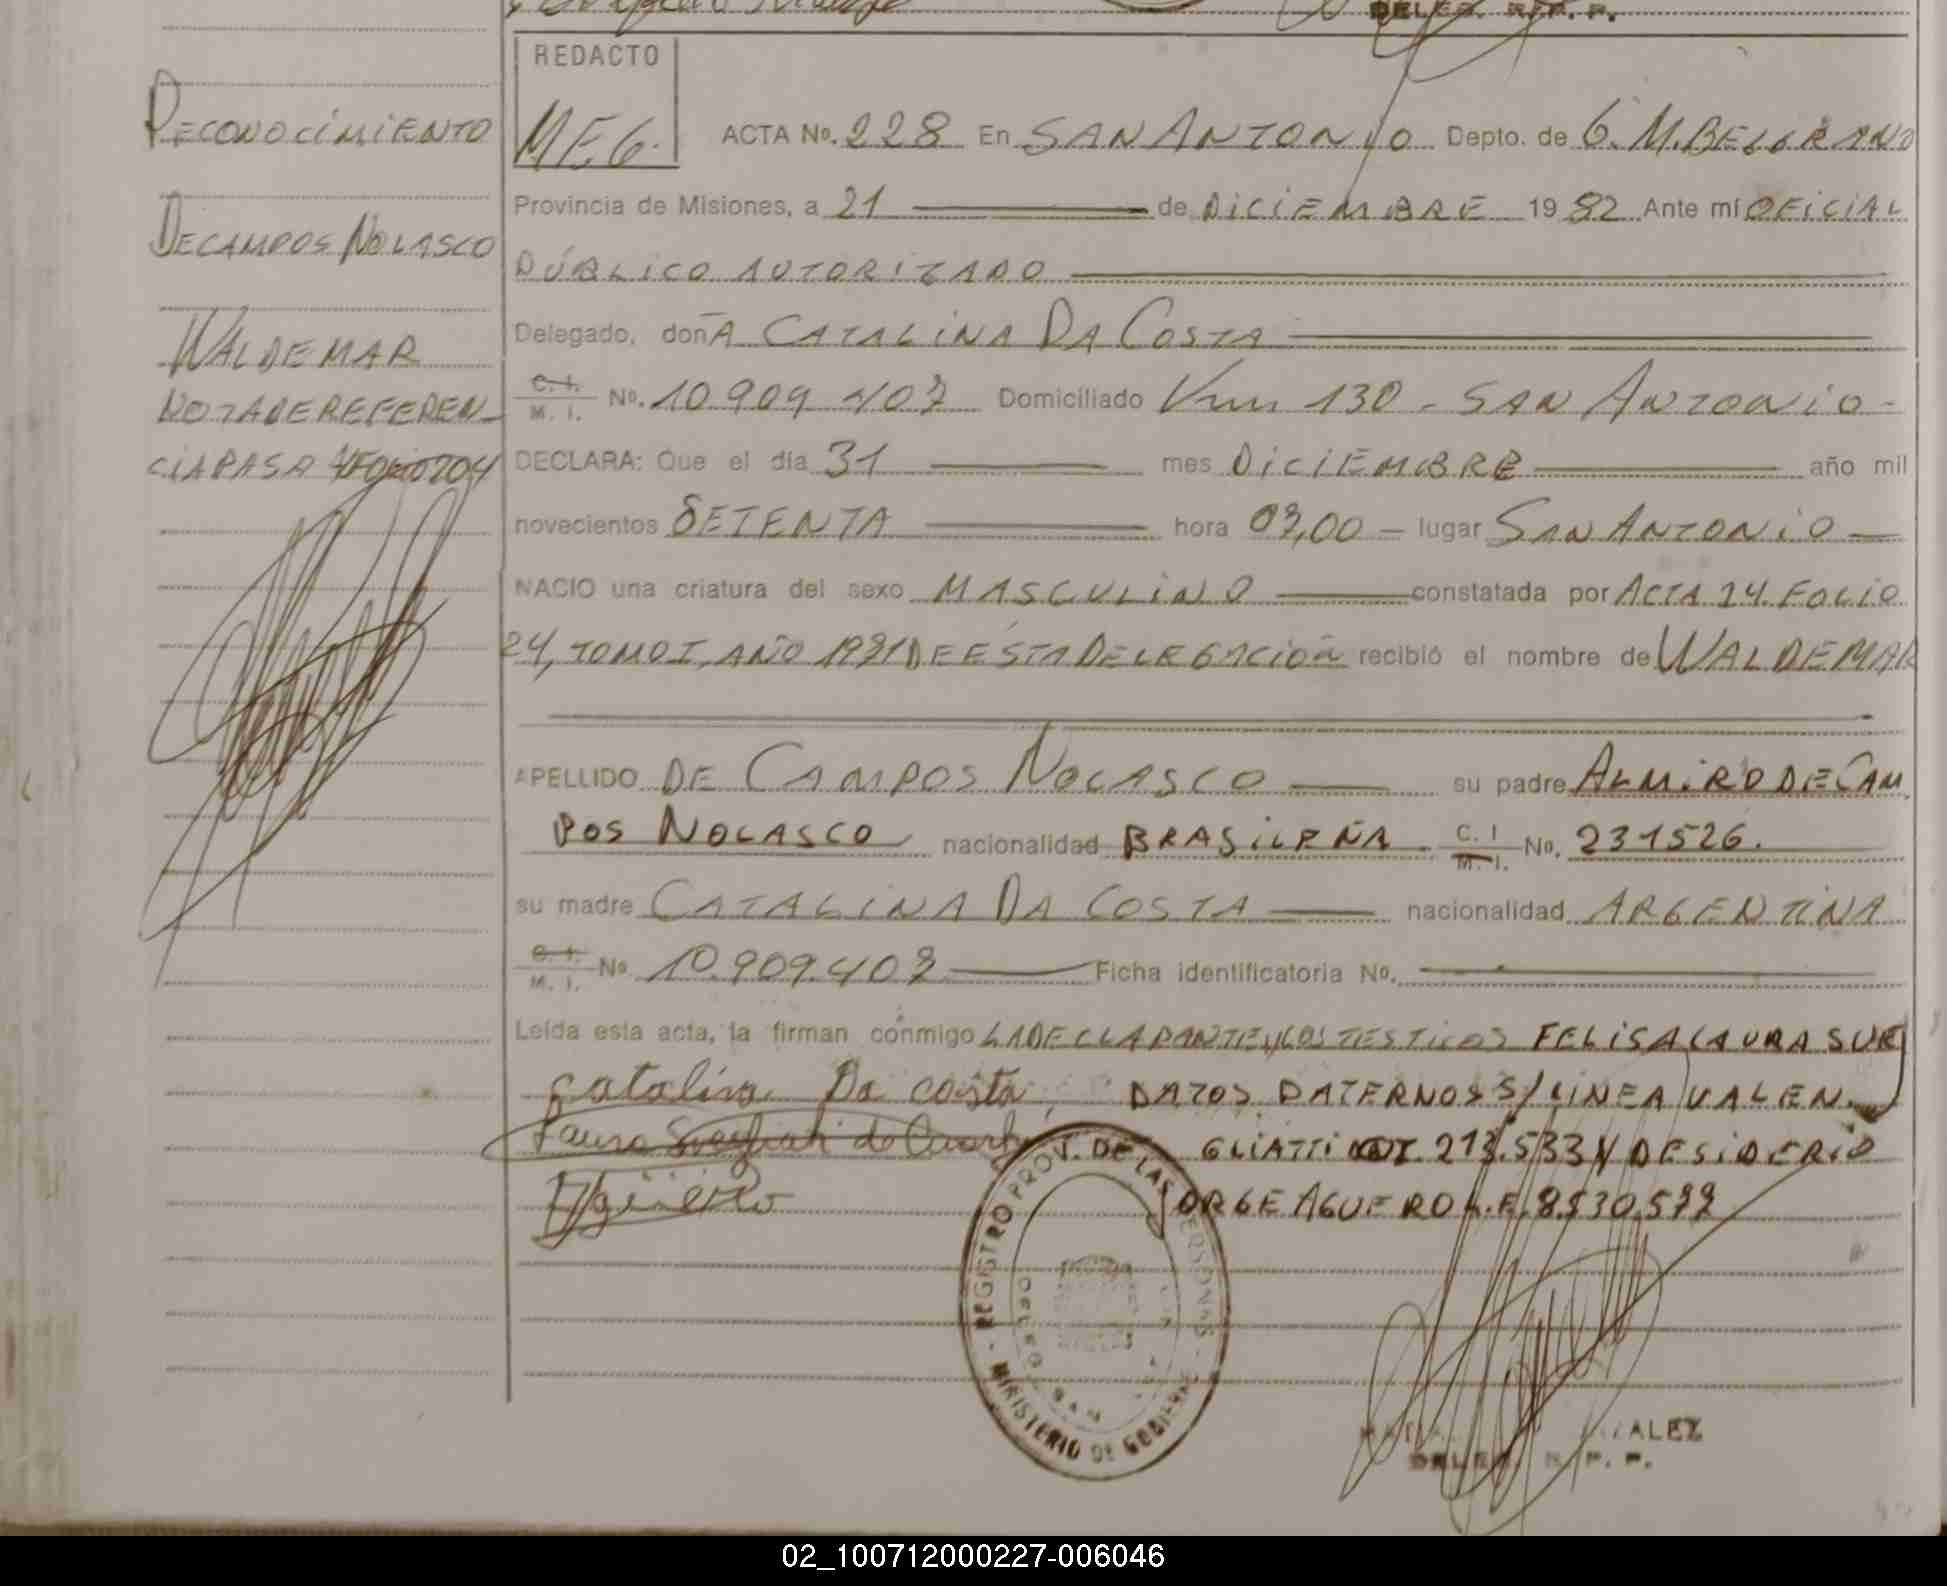 DELEG. R. P. P.
REDACTO
M.E.G.
RECONOCIMIENTO
DE CAMPOS NOLASCO
WALDEMAR
NOTA DE REFEREN-
CIA PASA AL FOLIO 204
ACTA No. 228 En SAN ANTONIO Depto. de G. M. BELGRANO
Provincia de Misiones, a 21 de DICIEMBRE 19 82 Ante mí OFICIAL
PÚBLICO AUTORIZADO
Delegado, doñA CATALINA DA COSTA
C. I. M. I. No. 10.909.407 Domiciliado Km 130 - SAN ANTONIO -
DECLARA: Que el día 31 mes DICIEMBRE año mil
novecientos SETENTA hora 07,00 - lugar SAN ANTONIO
NACIO una criatura del sexo MASCULINO constatada por ACTA 24. FOLIO
24, TOMO I, AÑO 1971 DE ÉSTA DELEGACIÓN recibió el nombre de WALDEMAR
APELLIDO DE CAMPOS NOLASCO su padre ALMIRO DE CAM
POS NOLASCO nacionalidad BRASILEÑA C. I M. I. No. 231526.
su madre CATALINA DA COSTA nacionalidad ARGENTINA
C. I. M. I. No 10.909.407 Ficha identificatoria No.
Leída esta acta, la firman conmigo LA DECLARANTE Y LOS TESTIGOS FELISA LAURA SUE
Catalina Da costa DATOS PATERNOS S/LINEA VALEN.
GLIATTI 213.533 Y DESIDERIO
Agüero JORGE AGUERO L.E. 8.530.577
REGISTRO PROV. DE LAS PERSONAS - MINISTERIO DE GOBIERNO
DELEG. R. P. P.
02_100712000227-006046